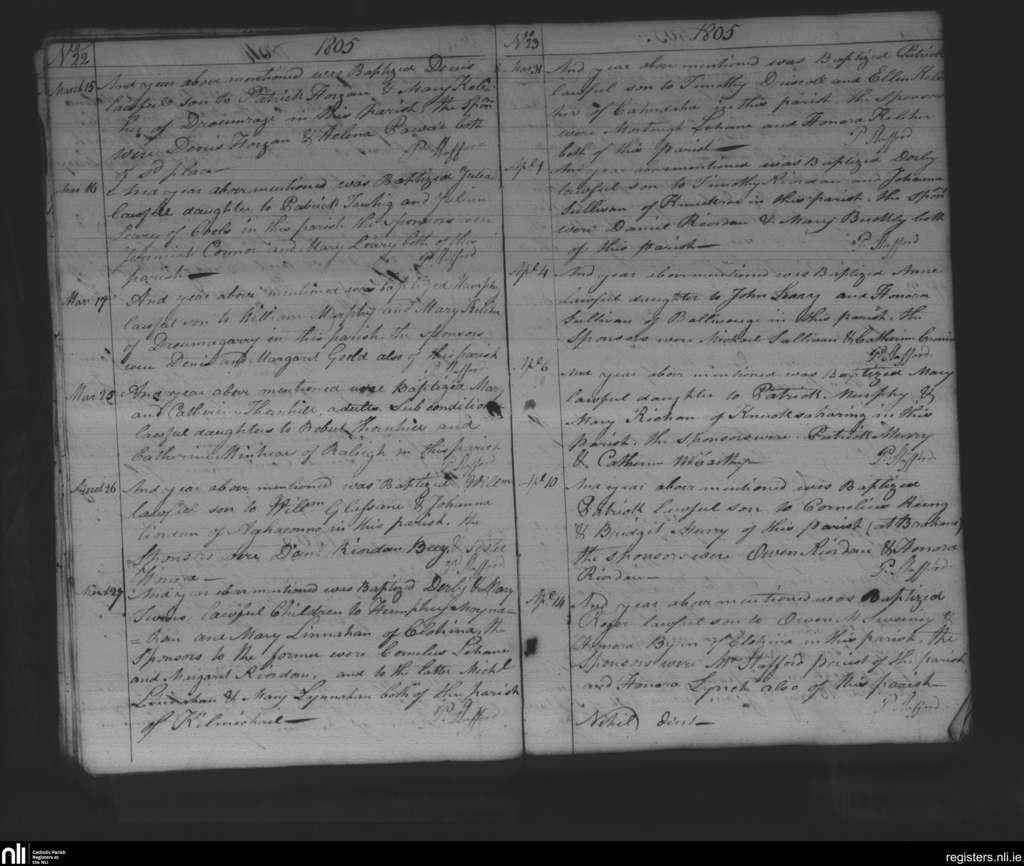 No 22
1805
March 15 And year above mentioned were Baptized Denis
lawful son to Patrick Horgan & Mary Kele
her of Dromcarra in this Parish the Spon
were Denis Horgan & Helena both
of sd place
P. Stafford
Mar 16 And year above mentioned was Baptized Julia
lawful daughter to Patrick and Julian
Leary of Coole in this parish the Sponsors were
Jeremiah Connor and Mary Lowry both of this
parish
P. Stafford
Mar 17 And year above mentioned was baptized Humphy
lawful son to William Murphy and Mary
of Dromagarry in this parish the sponsors
were Denis and Margaret Goold also of this parish
P. Stafford
Mar 25 And year above mentioned were Baptized Mary
and Catherine Thornhill, adults, Sub conditione
lawful daughters to Robert Thornhill and
Catherine of Raleigh in this parish
P. Stafford
March 26 And year above mentioned was Baptized Willm
lawful son to Willm Glassane & Johanna
of in this parish. the
Sponsors were Danl Riordan & Sister
Honora
P. Stafford
March 27 And year above mentioned was Baptized Derby & Mary
Twins lawful Children to Humphry Moyna=
=han and Mary Linnahan of Clohina, the
Sponsors to the former were Cornelius Lehane
and Margaret Riordan, and to the latter Michl
Linnahan & Mary Lynnahan both of the parish
of Kilmichael
P. Stafford
No 23
1805
Mar 31 And year above mentioned was Baptized Patrick
lawful son to Timothy Driscoll and Ellen Kele
her of in this parish the Sponsors
were Mortaugh Lehane and Honora Keleher
both of this parish
P. Stafford
Apl 1 And year abovementioned was Baptized Derby
lawful son to Timothy Riordan and Johanna
Sullivan of in this parish, the Sponrs
were Daniel Riordan & Mary Buckly both
of this parish
P. Stafford
Apl 4 And year abovementioned was Baptized Anne
lawful daughter to John Leary and Honora
Sullivan of in this parish. the
Sponsors were Michael Sullivan & Catherine Cronin
P. Stafford
Apl 6 And year above mentioned was Baptized Mary
lawful daughter to Patrick Murphy &
Mary of Knocksaharing in this
parish. the Sponsors were Patrick Murry
& Catherine McCarthy
P. Stafford
Apl 10 And year above mentioned was Baptized
Patrick lawful son to Cornelius
& Bridget of this parish (at )
the sponsors were Owen Riordan & Honora
Riordan
P. Stafford
Apl 14 And year above mentioned was Baptized
Roger lawful son to Owen M Sweeny &
Honora Byrn of Clohina in this parish. the
Sponsors were Mr Stafford priest of the parish
and Honora Lynch also of this parish
P. Stafford
Nihil deest
nli
Catholic Parish
Registers at
the NLI
registers.nli.ie